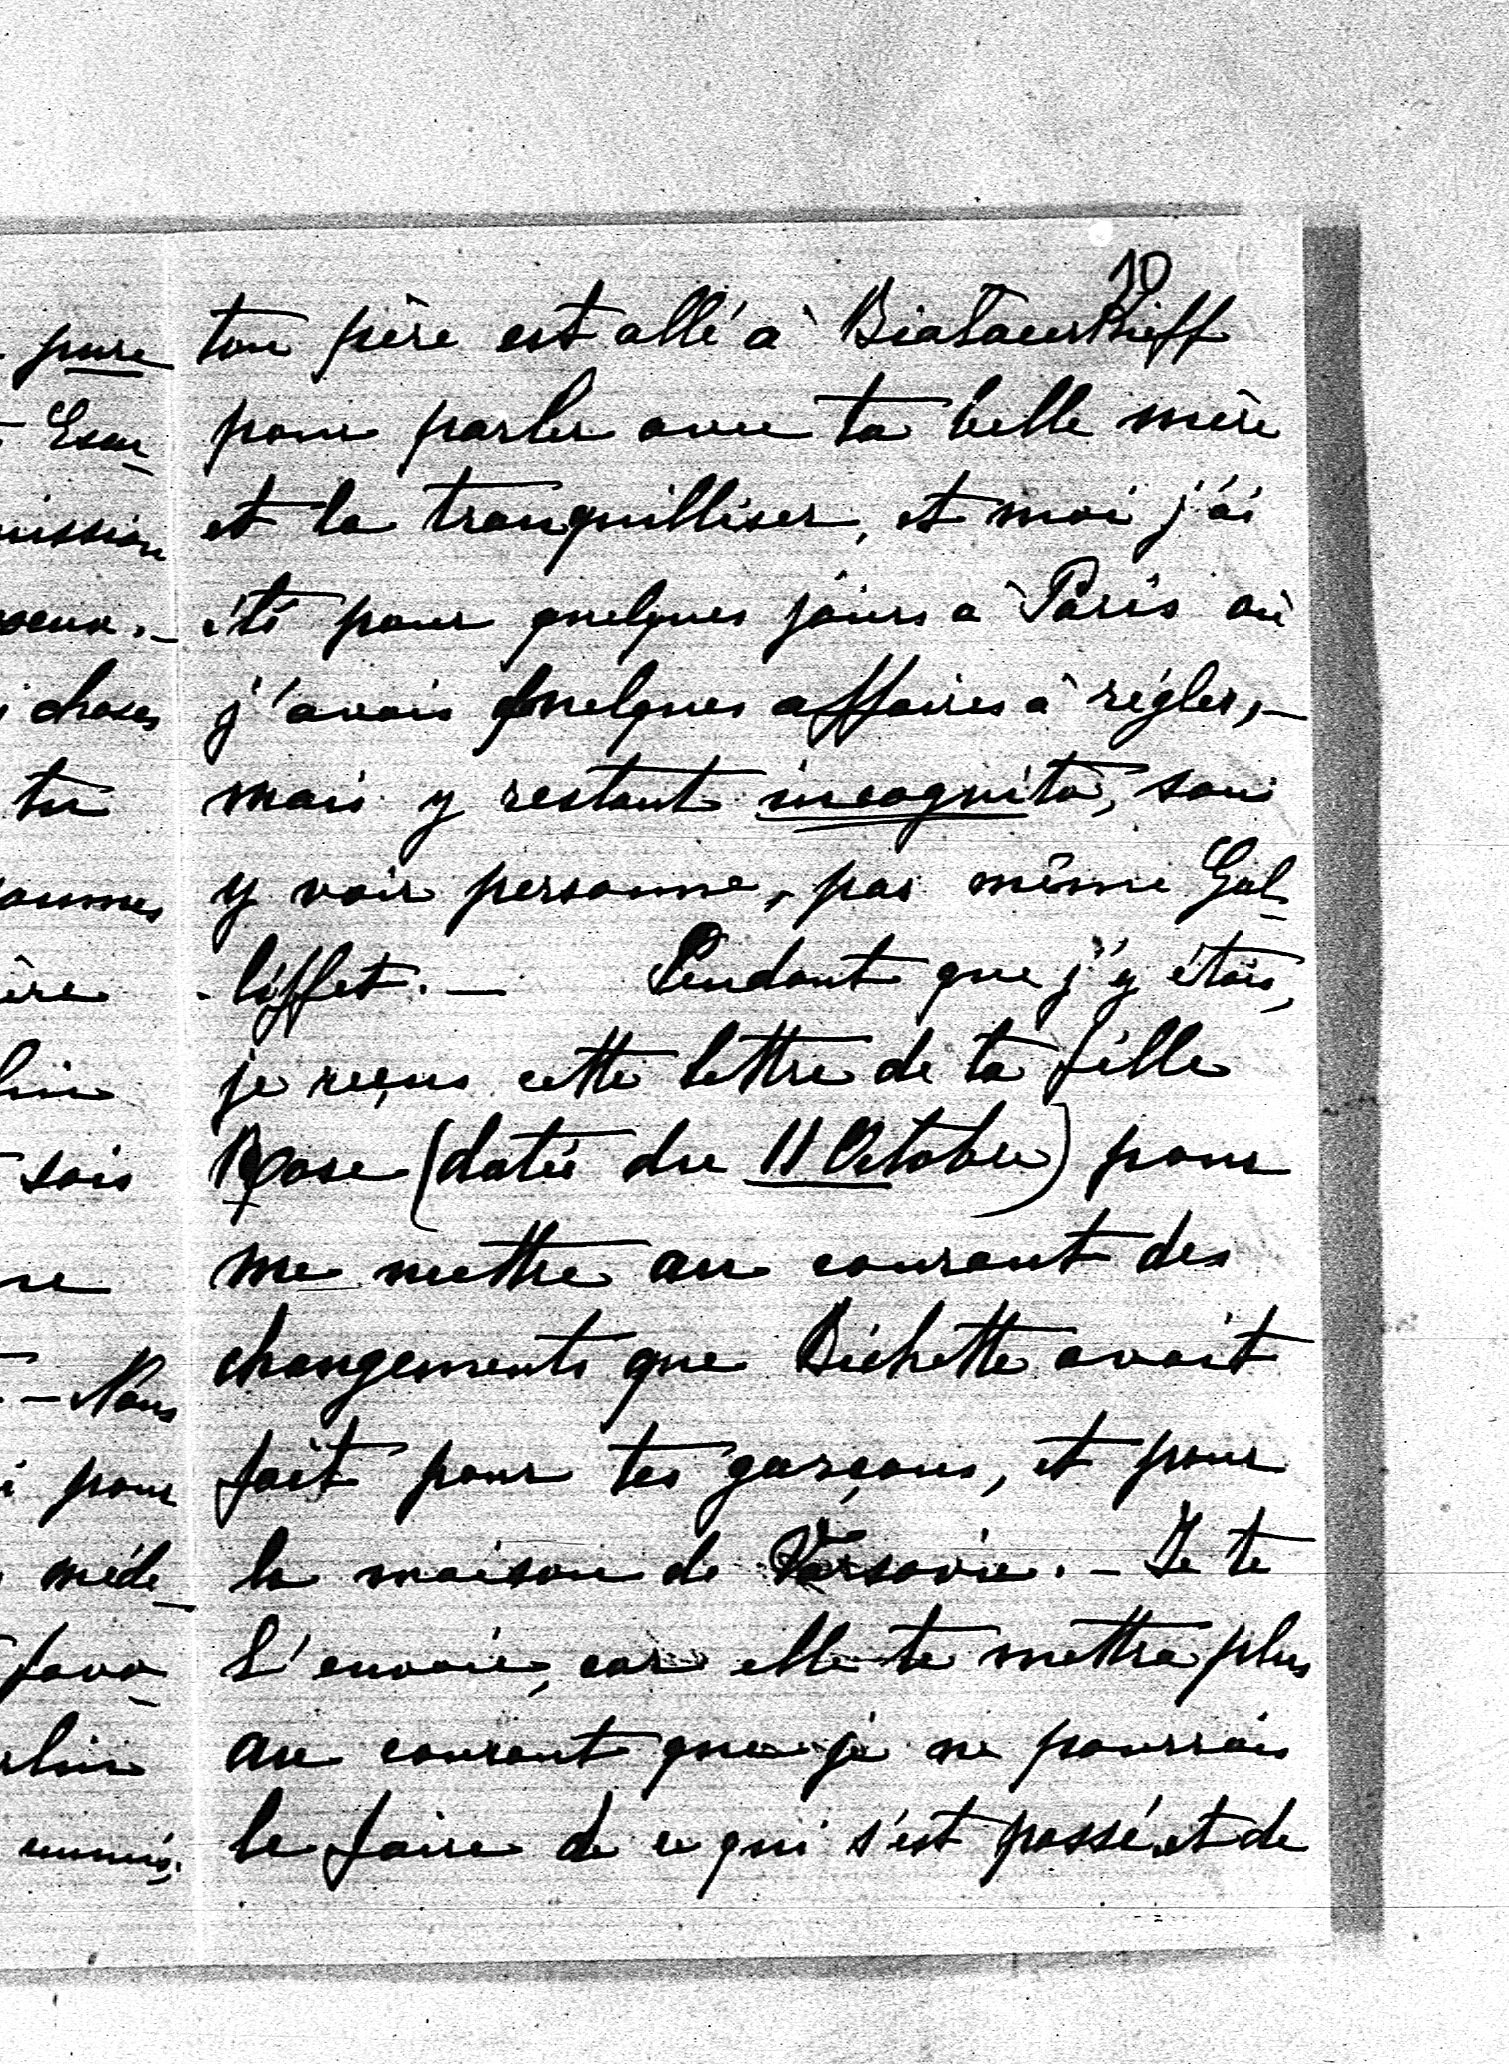 10
ton père est allé à Biataerkieff
pour parler avec ta belle mère
et la tranquilliser, et moi j'ai
été pour quelques jours à Paris où
j'avais quelques affaires à régler,—
mais y restant incognito, sans
y voir personne, pas même Gal-
liffet. — Pendant que j'y étais,
je reçus cette lettre de ta fille
Rose (datée du 11 Octobre) pour
me mettre au courant des
changements que Bichette avait
fait pour tes garçons, et pour
la maison de Varsovie. — Je te
l'envoie, car elle te mettra plus
au courant que je ne pourrais
le faire de ce qui s'est passé et de
pure
mission
choses
tu
sois
— Nous
pour
méde-